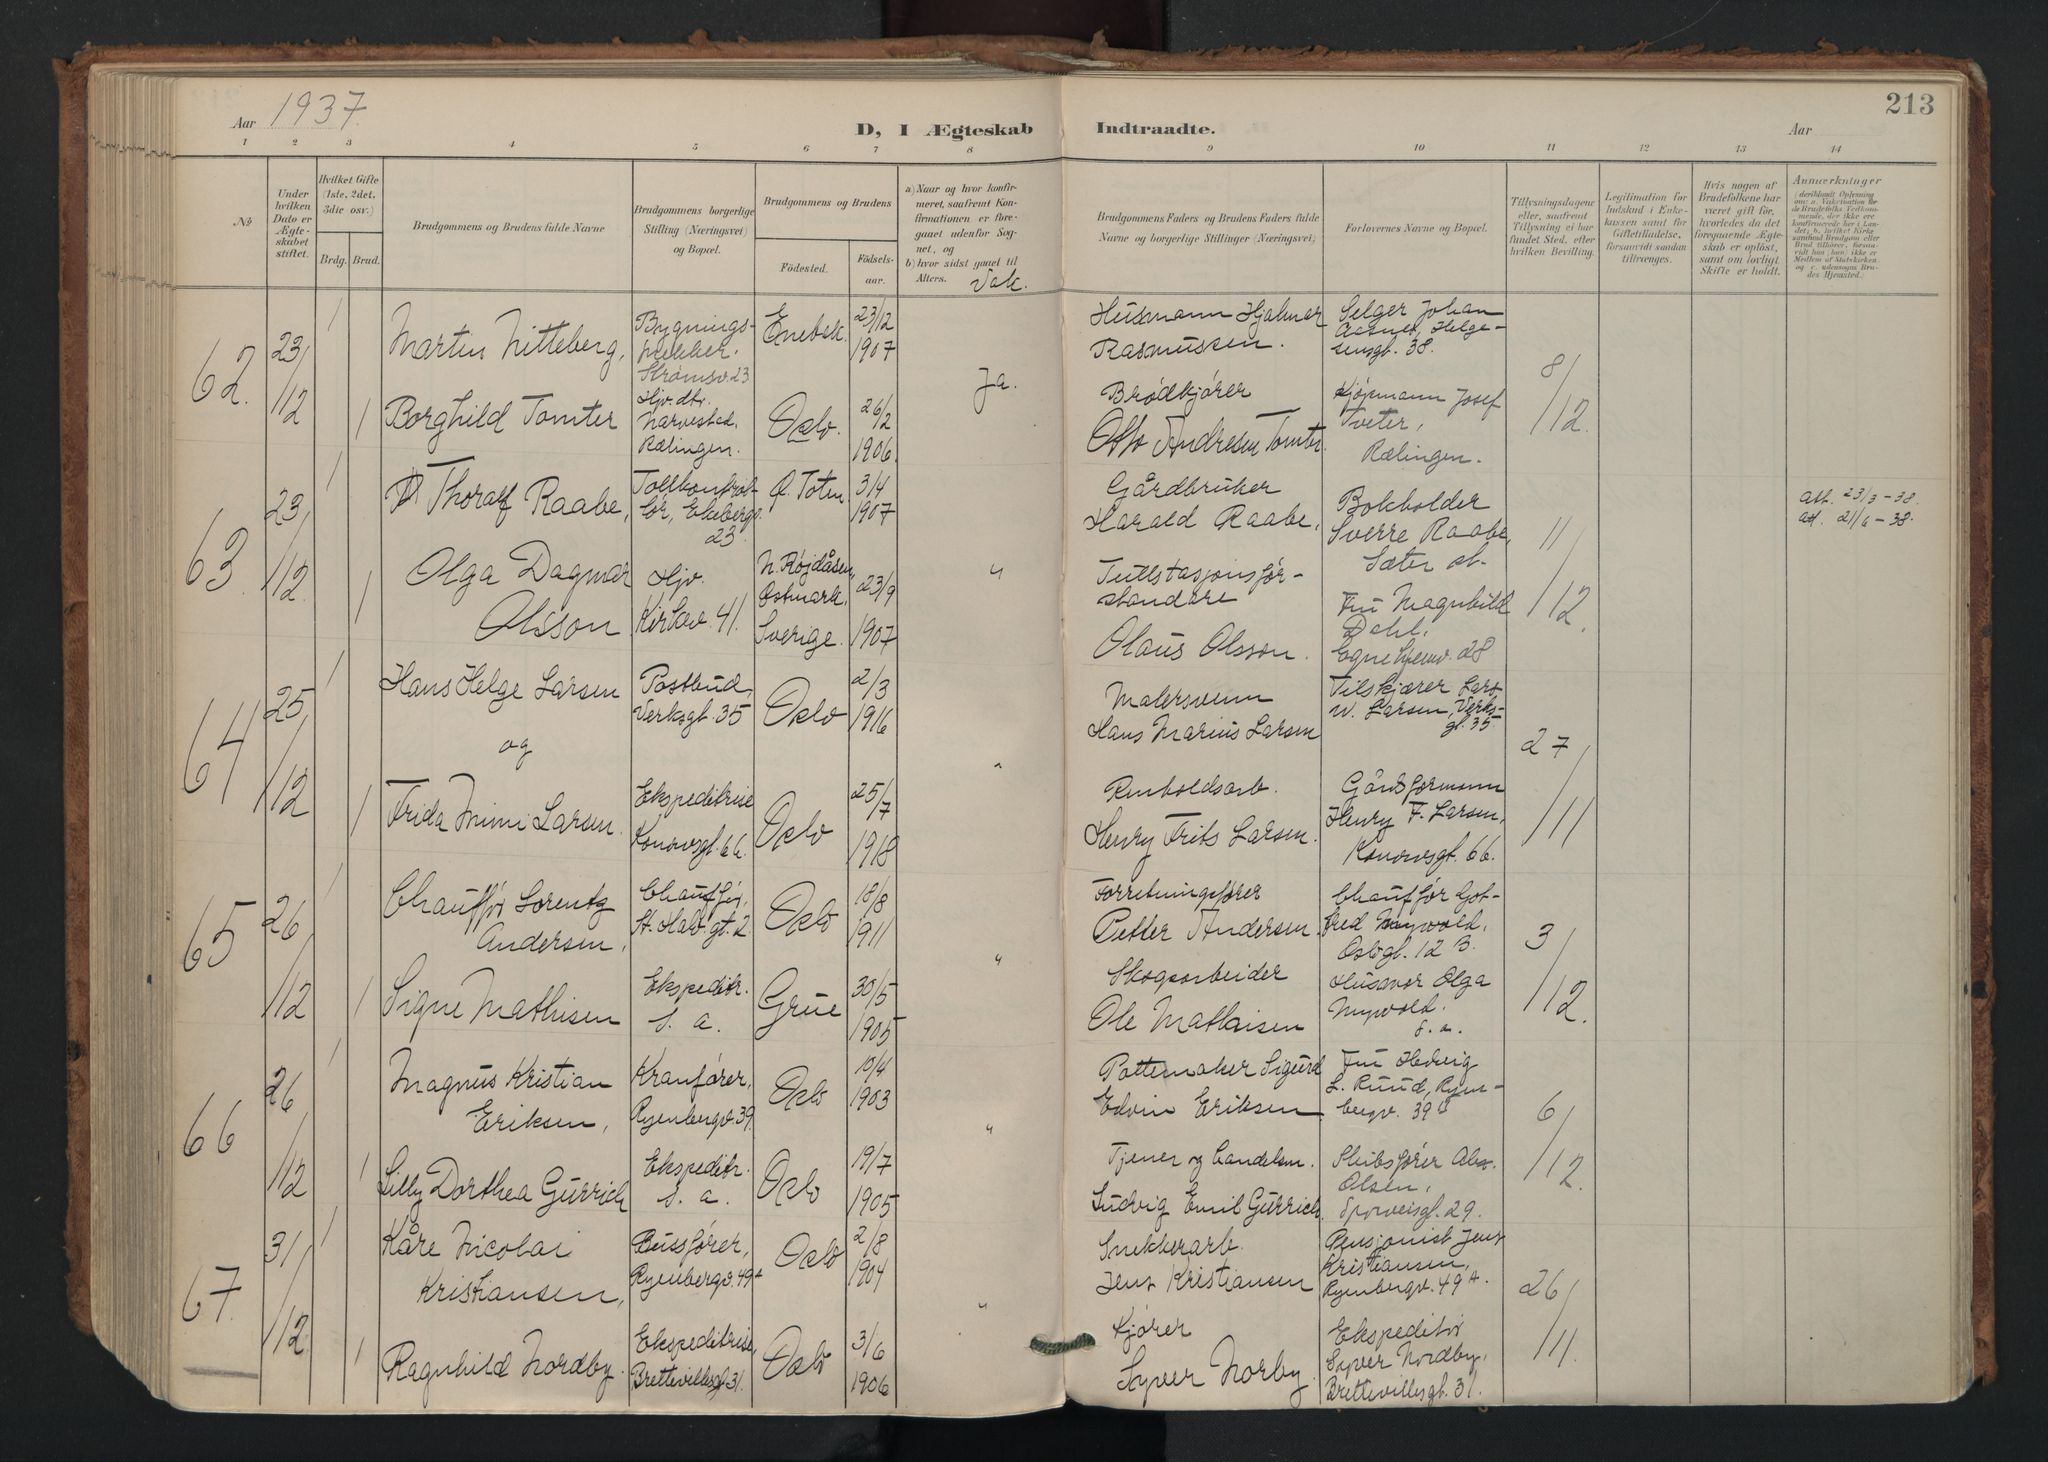 Aar 1937
D, I Ægteskab Indtraadte.
Aar
213
1 2 3 4 5 6 7 8 9 10 11 12 13 14
№
Under hvilken Dato er Ægteskabet stiftet.
Hvilket Gifte (1ste, 2det, 3die osv.)
Brdg. Brud.
Brudgommens og Brudens fulde Navne
Brudgommens borgerlige Stilling (Næringsvei) og Bopæl.
Brudgommens og Brudens
Födested.
Födsels-aar.
a) Naar og hvor konfirmeret, saafremt Konfirmationen er foregaaet udenfor Sognet, og
b) hvor sidst gaaet til Alters.
Vak.
Brudgommens Faders og Brudens Faders fulde Navne og borgerlige Stillinger (Næringsvei)
Forlovernes Navne og Bopæl.
Tillysningsdagene eller, saafremt Tillysning ei har fundet Sted, efter hvilken Bevilling.
Legitimation for Indskud i Enkekassen samt for Giftetilladelse, forsaavidt saadan tiltrænges.
Hvis nogen af Brudefolkene har været gift för, hvorledes da det foregaaende Ægteskab er oplöst, samt om lovligt Skifte er holdt.
Anmærkninger
62. 23/12
1 Martin Nitteberg,
Bygnings-
snekker.
Strømsv. 23
Enebak.
23/12 1907
Husmann Hjalmar
Rasmussen.
Selger Johan
Aasnes, Helge-
sensgt. 38.
1 Borghild Tomter
Hjv. dtr.
Narvestad,
Rælingen.
Oslo.
26/2 1906.
Ja.
Brødkjører
Otto Andresen Tomter
Kjøpmann Josef
Tveter,
Rælingen.
8/12.
63. 23/12.
1 Thoralf Raabe,
Tollkontrol-
lør, Ekebergv.
23.
Ø. Toten
3/4 1907
Gårdbruker
Harald Raabe,
Bokholder
Sverre Raabe,
Sæter st.
1 Olga Dagmar
Olsson
Hjv.
Kirkev. 41.
N. Røjdåsen,
Østmark,
Sverige.
23/9 1907
"
Tullstasjonsför-
standare
Olaus Olsson.
Fru Magnhild
Dahl,
Egnehjemv. 28
11/12.
att. 23/3-38.
att. 21/6-38.
64 25/12
1 Hans Helge Larsen
og
Postbud,
Verksgt. 35
Oslo
2/3 1916
Malersvenn
Hans Marius Larsen
Filskjærer Lars
W. Larsen, Verks-
gt. 35.
1 Frida Mimi Larsen.
Ekspeditrise
Konowsgt. 66.
Oslo
25/7 1918
"
Renholdsarb.
Henry Frits Larsen.
Gårdsformann
Henry F. Larsen,
Konowsgt. 66.
27/11
65 26/12
1 Chauffør Lorentz
Andersen,
Chauffør,
St. Halv. gt. 2.
Oslo
18/8 1911
Forretningsfører
Petter Andersen.
Chauffør Got-
fred Myrvold,
Oslogt. 12 B.
1 Signe Mathisen
Ekspeditr.
s. a.
Grue
30/5 1905
"
Skogsarbeider
Ole Mathisen
Husmor Olga
Myrvold.
s. a.
3/12.
66 26/12
Magnus Kristian
Eriksen,
Kranfører,
Ryenbergv. 39.
Oslo
10/4 1903
Pottemaker Sigurd
Edvin Eriksen.
Fru Hedvig
L. Ruud, Ryen-
bergv. 39 B
1 Lilly Dorthea Gurrich
Ekspeditr.
s. a.
Oslo
19/7 1905
"
Tjener og handelsm.
Ludvig Emil Gurrich.
Skibsfører Alex.
Olsen,
Sporveisgt. 29.
6/12.
67 31/12.
1 Kåre Nicolai
Kristiansen,
Bussfører,
Ryenbergv. 49 A
Oslo
2/8 1904
Snekkerarb.
Jens Kristiansen
Pensjonist Jens
Kristiansen,
Ryenbergv. 49 A.
1 Ragnhild Nordby.
Ekspeditrise,
Brettevillesgt. 31.
Oslo
3/6 1906
"
Kjører
Syver Norby.
Ekspeditør
Syver Nordby,
Brettevillesgt. 31.
26/11.